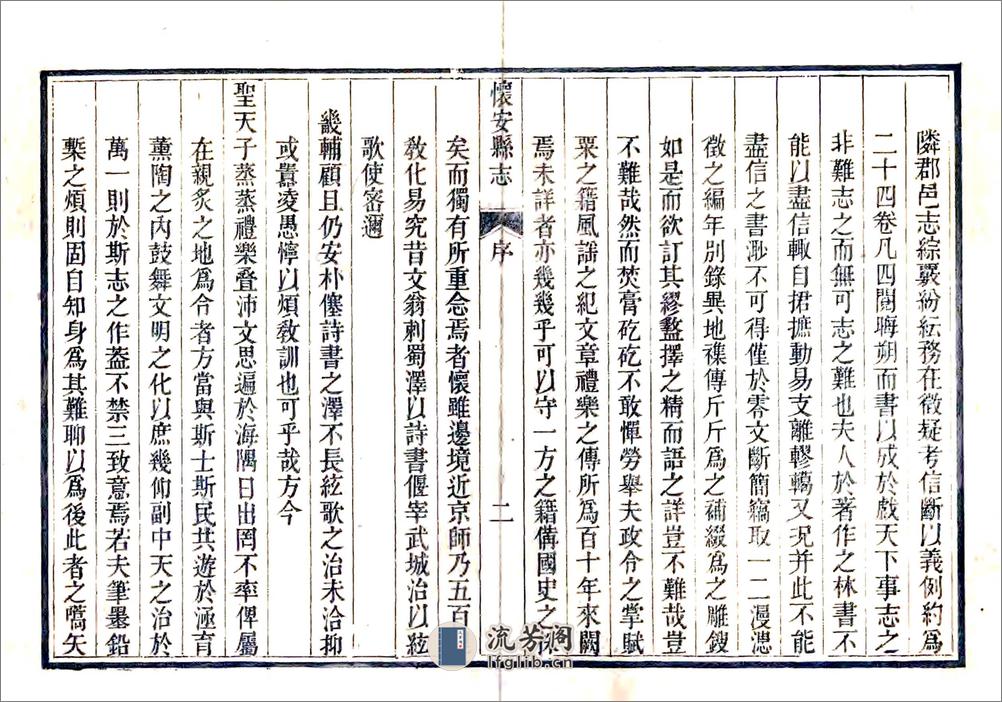 隣郡邑志綜覈紛紜務在徵疑考信斷以義例約爲
二十四卷凡四閱晦朔而書以成於戲天下事志之
非難志之而無可志之難也夫人於著作之林書不
能以盡信輙自捃摭動易支離轇轕又况并此不能
盡信之書渺不可得僅於零文斷簡竊取一二漫漶
徵之編年別錄異地襍傳斤斤爲之補綴爲之雕鎪
如是而欲訂其繆盭擇之精而語之詳豈不難哉豈
不難哉然而焚膏矻矻不敢憚勞舉夫政令之掌賦
粟之籍風謠之紀文章禮樂之傳所爲百十年來闕
焉未詳者亦幾幾乎可以守一方之籍備國史之
懷安縣志 序 二
矣而獨有所重念焉者懷雖邊境近京師乃五百
敎化易究昔文翁刺蜀澤以詩書偃宰武城治以絃
歌使密邇
畿輔顧且仍安朴僿詩書之澤不長絃歌之治未洽抑
或囂凌愚懧以煩敎訓也可乎哉方今
聖天子蒸蒸禮樂疊沛文思遍於海隅日出罔不率俾屬
在親炙之地爲令者方當與斯士斯民共遊於涵育
薰陶之內鼓舞文明之化以庶幾仰副中天之治於
萬一則於斯志之作葢不禁三致意焉若夫筆墨鉛
槧之煩則固自知身爲其難聊以爲後此者之嚆矢
流芳阁
lfglib.cn